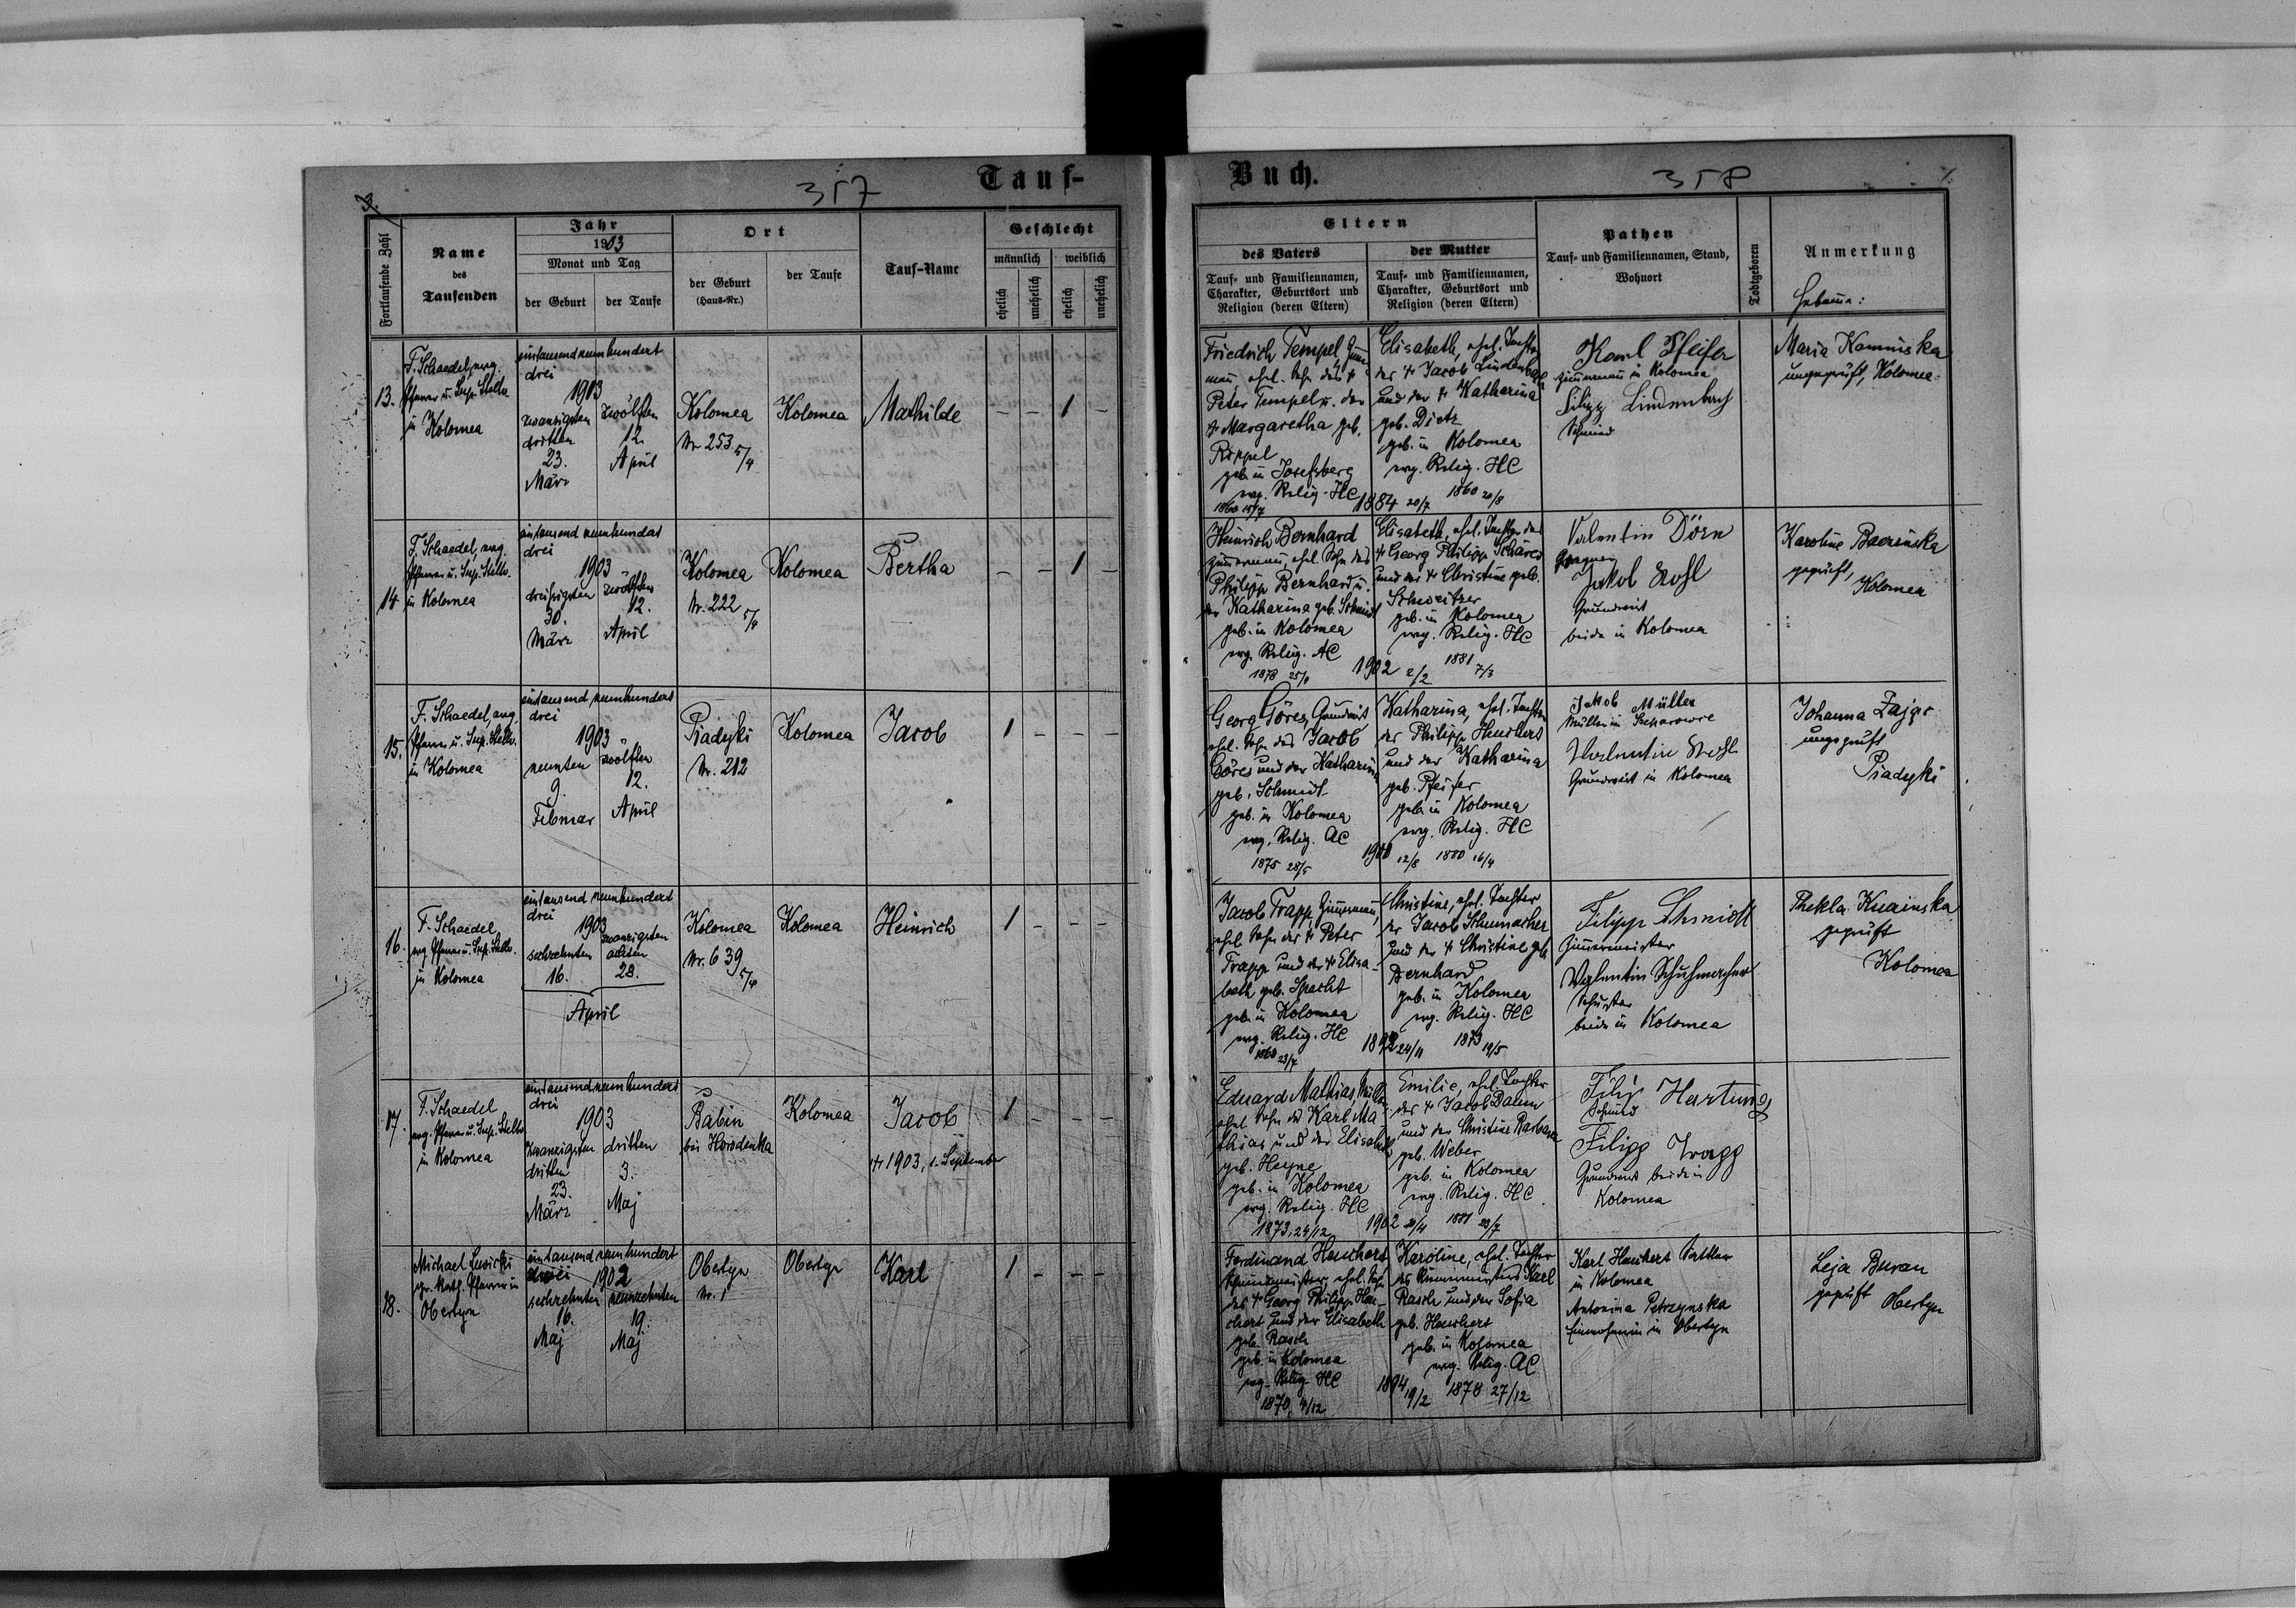 3.
357
Tauf-
Fortlaufende Zahl
Name
des
Taufenden
Jahr
1903
Monat und Tag
der Geburt
der Taufe
Ort
der Geburt
(Haus-Nr.)
der Taufe
Tauf-Name
Geschlecht
männlich
weiblich
ehelich
unehelich
ehelich
unehelich
13.
F. Schaedel, evg.
Pfarrer u. Sup. Stellv.
in Kolomea
eintausend neunhundert
drei
1903
zwanzigsten
dritten
23.
März
zwölften
12.
April
Kolomea
Nr. 253 5/4
Kolomea
Mathilde
– – 1 –
14
F. Schaedel, evg.
Pfarrer u. Sup. Stellv.
in Kolomea
eintausend neunhundert
drei
1903
dreißigsten
30.
März
zwölften
12.
April
Kolomea
Nr. 222 5/4
Kolomea
Bertha
– – 1 –
15.
F. Schaedel, evg.
Pfarrer u. Sup. Stellv.
in Kolomea
eintausend neunhundert
drei
1903
neunten
9.
Februar
zwölften
12.
April
Piadyki
Nr. 212
Kolomea
Jacob
1 – – –
16.
F. Schaedel
evg. Pfarrer u. Sup. Stellv.
in Kolomea
eintausend neunhundert
drei
1903
sechzehnten
16.
zwanzigsten
achten
28.
April
Kolomea
Nr. 639 5/4
Kolomea
Heinrich
1 – – –
17.
F. Schaedel
evg. Pfarrer u. Sup. Stellv.
in Kolomea
eintausend neunhundert
drei
1903
zwanzigsten
dritten
23.
März
dritten
3.
Maj
Babin
bei Horodenka
Kolomea
Jacob
1903, 1. September
1 – – –
18.
Michael
gr. kath. Pfarrer in
Obertyn
eintausend neunhundert
1902
sechzehnten
16.
Maj
neunzehnten
19.
Maj
Obertyn
Nr. 1
Obertyn
Karl
1 – – –
Buch.
358
Eltern
des Vaters
Tauf- und Familiennamen,
Charakter, Geburtsort und
Religion (deren Eltern)
der Mutter
Tauf- und Familiennamen,
Charakter, Geburtsort und
Religion (deren Eltern)
Pathen
Tauf- und Familiennamen, Stand,
Wohnort
Todtgeboren
Anmerkung
Friedrich Tempel, Zimmer-
mann, ehel. Sohn des †
Peter Tempel u. der
† Margaretha geb.
Rippel
geb. in Josefsberg
evg. Relig. HC
1860 15/7
1884 20/7
Elisabeth, ehel. Tochter
des † Jacob Lindenbach
und der † Katharina
geb. Dietz
geb. in Kolomea
evg. Relig. HC
1860 20/8
Karl Pfeifer
Zimmermann in Kolomea
Filipp Lindenbach
Schmied
Maria Kaminska
ungeprüft, Kolomea
Heinrich Bernhard
Zimmermann, ehel. Sohn des
Philipp Bernhard u.
der Katharina geb. Schmidt
geb. in Kolomea
evg. Relig. AC
1878
1902 2/2
Elisabeth, ehel. Tochter des
† Georg Philipp Schärer
und der † Christine geb.
Schweitzer
geb. in Kolomea
evg. Relig. HC
1881 7/3
Valentin Dörn
Jakob
Grundwirt
beide in Kolomea
Karoline
geprüft,
Kolomea
Georg Göres, Grundwirt
ehel. Sohn des Jacob
Göres und der Katharina
geb. Schmidt
geb. in Kolomea
evg. Relig. AC
1875 28/5
12/8
Katharina, ehel. Tochter
des Philipp Heuchert
und der Katharina
geb. Pfeifer
geb. in Kolomea
evg. Relig. HC
1880 16/4
Jakob Müller
Müller in
Grundwirt in Kolomea
Johanna Zając
ungeprüft
Piadyki
Jacob Trapp, Zimmermann,
ehel. Sohn des † Peter
Trapp und der † Elisa-
beth geb. Specht
geb. in Kolomea
evg. Relig. HC
23/7
24/11
Christine, ehel. Tochter
des Jacob Schumacher
und der † Christine geb.
Bernhard
geb. in Kolomea
evg. Relig. HC
1873 19/5
Filipp Schmidt
Zimmermeister
Valentin Schuhmacher
Schuster
beide in Kolomea
Thekla
geprüft
Kolomea
Eduard Mathias, Müller
ehel. Sohn des Karl Ma-
thias und der Elisabeth
geb. Heyne
geb. in Kolomea
evg. Relig. HC
1873, 24/12
1902
Emilie, ehel. Tochter
des † Jacob Daum
und der Christine Barbara
geb. Weber
geb. in Kolomea
evg. Relig. HC
1881 23/7
Filip Hartung
Schmied
Filipp Trapp
Grundwirt beide in
Kolomea
Ferdinand Heuchert
ehel. Sohn
des † Georg Philipp Heu-
chert und der Elisabeth
geb. Rasch
geb. in Kolomea
evg. Relig. HC
1870, 4/12
1894 19/2
Karoline, ehel. Tochter
des Karl
Rasch und der Sofia
geb. Heuchert
geb. in Kolomea
evg. Relig. AC
1878 27/12
Karl Heuchert Sattler
in Kolomea
Antonina Petrzynska
Einwohnerin in Obertyn
Leja Buran
geprüft Obertyn